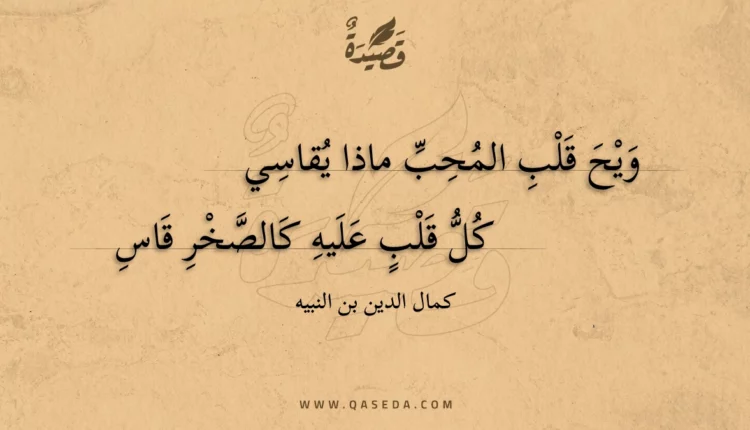 قَصِيْدَةٌ
وَيْحَ قَلْبِ المُحِبِّ ماذا يُقاسِي
كُلُّ قَلْبٍ عَلَيهِ كَالصَّخْرِ قَاسِ
كمال الدين بن النبيه
WWW.QASEDA.COM